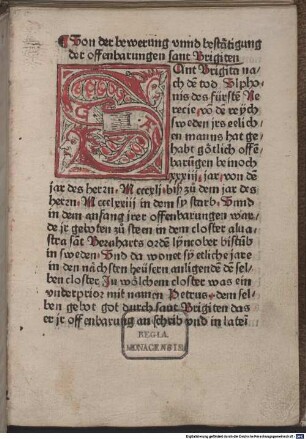 ¶ Von der bewerung vnnd bestätigung
der offenbarungen sant Brigiten
SAnt Brigita na
ch dē tod Vlpho
nis des fürstē Ne
recie, vō dē reych
sweden jrs eelich
en manns hat ge
habt götlich offē
barūgen bei noch
xxxiij. jar, von dē
jar des herrn. M ccc xlj. biß zů dem jar des
herrn. M ccc lxxiij in dem sy starb. Vnnd
in dem anfang jrer offenbarungen war,
de jr geboten zů steen in dem closter alua
stra sāt Bernharts ordē lyncober bistūb
in sweden. Vnd da wonet sy etliche jare
in den nächsten heüsern anligendē dē sel-
ben closter. In wölchem closter was ein
vnderprior mit namen Petrus, dem sel-
ben gebot got durch sant Brigiten das
er jr offenbarung an schrib vnd in latei
REGIA
MONACENSIS